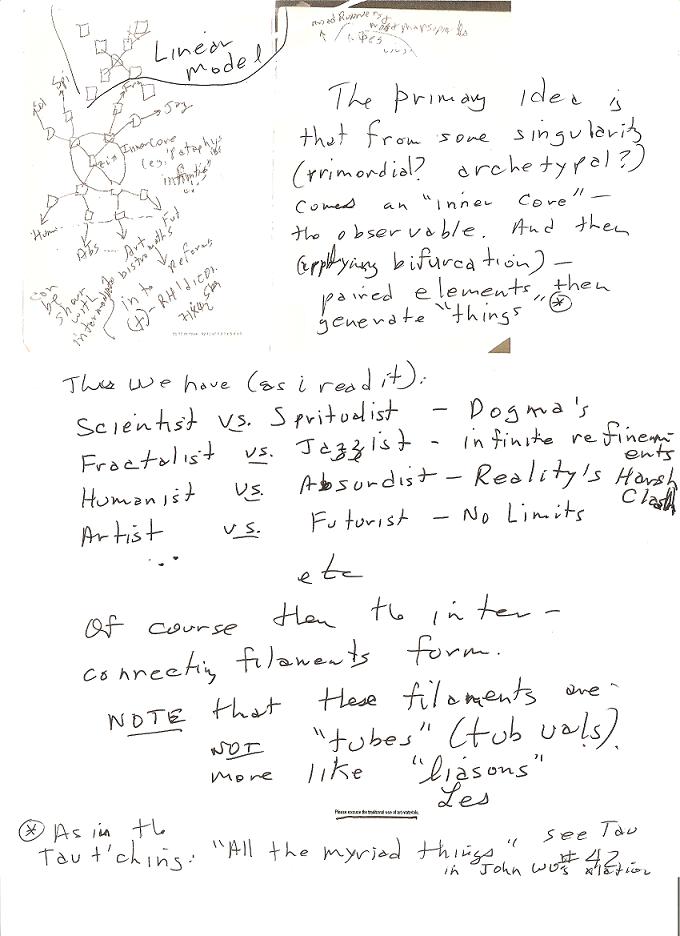 Linear
model
Spi
Fra
Jaz
Inner Core
(eg: 'Pataphys
Hum.
Abs
Art
Fut
can
be
shown
with
intermediate
in to
The primary idea is
that from some singularity
(primordial? archetypal?)
comes an "inner core" —
the observable. And then
(applying bifurcation) —
paired elements then
generate "things" *
Thus we have (as i read it):
Scientist vs. Spritualist — Dogma's
Fractalist vs. Jazzist - infinite refinem-
ents
Humanist vs. Absurdist — Reality's Harsh
Clash
Artist vs. Futurist — No Limits
...
etc
Of course then the inter-
connecting filaments form.
NOTE that these filaments are
NOT "tubes" (tub uals).
more like "liasons"
Les
Please excuse the traditional use of art-materials.
* As in the
Tau t'ching: "All the myriad things" see Tau
# 42
in John Wu's xlation